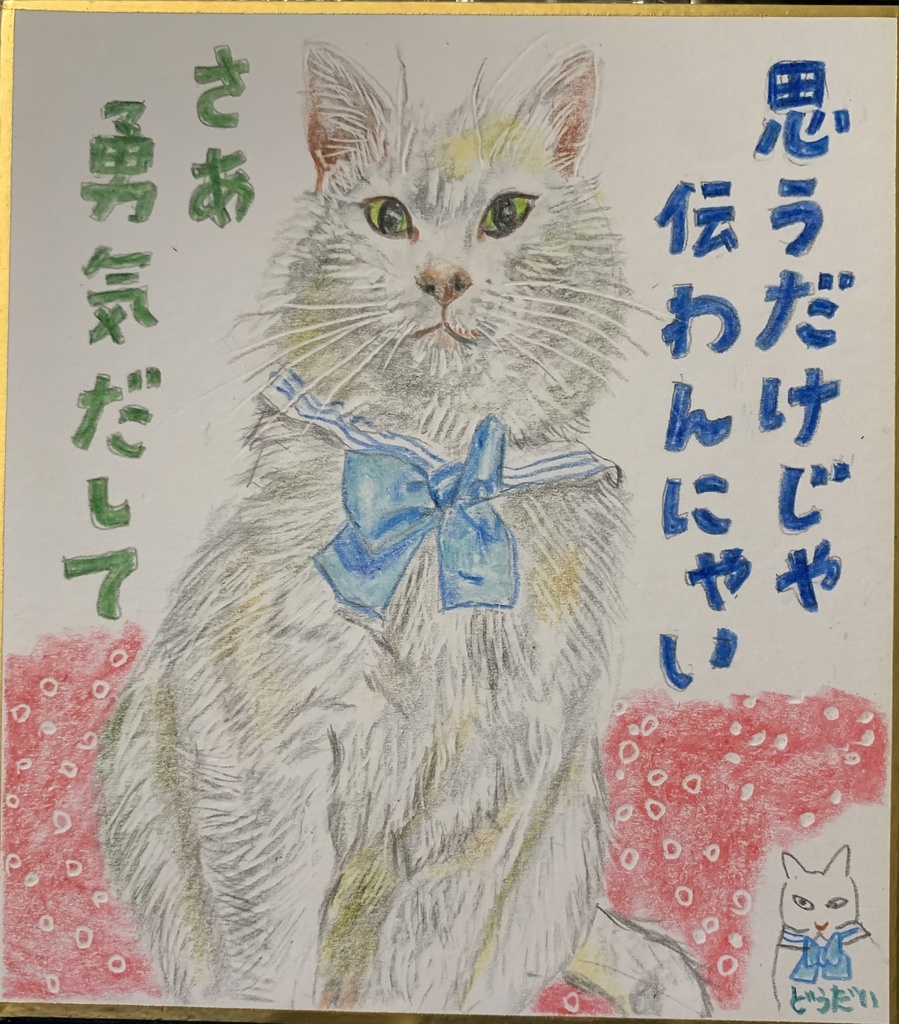 思うだけじゃ
伝わんにゃい
さあ
勇気だして
どうだい